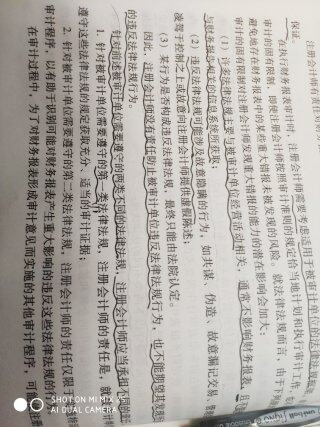 注册会计师有责任对财务
保证。
在执行财务报表审计时，注册会计师需要考虑适用于被审计单位的法律法规框架
审计的固有限制，即使注册会计师按照审计准则的规定恰当地计划和执行审计工作
避免地存在财务报表中的某些重大错报未被发现的风险。就法律法规而言，由于下列
审计的固有限制对注册会计师发现重大错报的能力的潜在影响会加大：
（1）许多法律法规主要与被审计单位经营活动相关，通常不影响财务报表，且
与财务报告相关的信息系统所获取；
（2）违反法律法规可能涉及故意隐瞒的行为，如共谋、伪造、故意漏记交易、管理
凌驾于控制之上或故意向注册会计师提供虚假陈述；
（3）某行为是否构成违反法律法规，最终只能由法院认定。
因此，注册会计师没有责任防止被审计单位违反法律法规行为，也不能期望其发现所有
的违反法律法规行为。
针对前述被审计单位需要遵守的两类不同的法律法规，注册会计师应当承担不同的责任
1. 针对被审计单位需要遵守的第一类法律法规，注册会计师的责任是，就
遵守这些法律法规的规定获取充分、适当的审计证据；
2. 针对被审计单位需要遵守的第二类法律法规，注册会计师的责任仅限于
审计程序，以有助于识别可能对财务报表产生重大影响的违反这些法律法规的
在审计过程中，为了对财务报表形成审计意见而实施的其他审计程序，可
SHOT ON MI MIX 2S
AI DUAL CAMERA